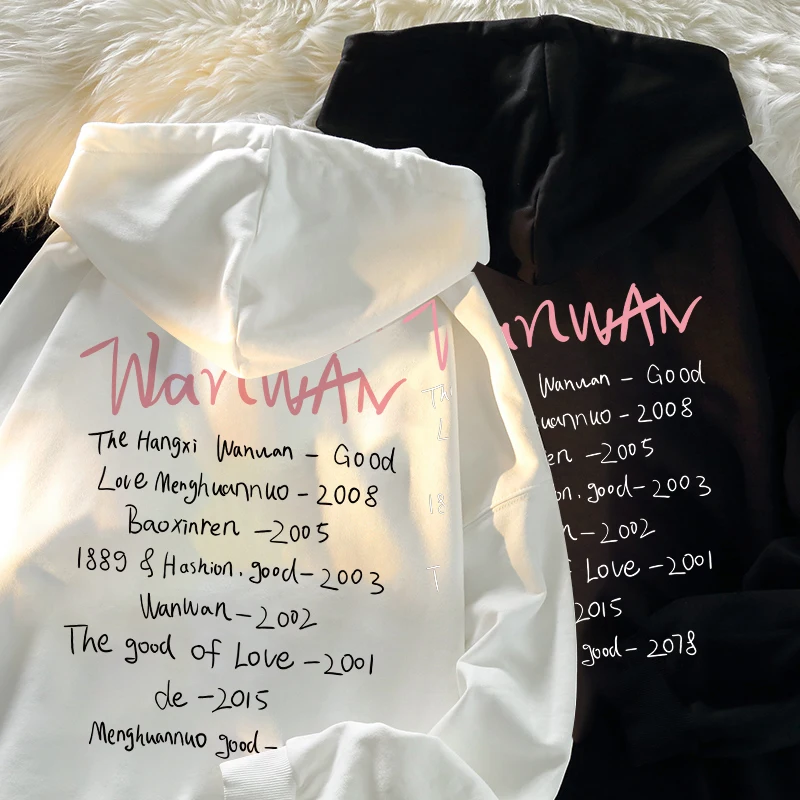 WanWAN
The Hangxi Wanwan - Good
Love Menghuannuo - 2008
Baoxinren - 2005
1889 & Hashion. good - 2003
WanWan - 2002
The good of Love - 2001
de - 2015
Menghuannuo good -
WanWAN
Wanwan - Good
uannuo - 2008
en - 2005
on. good - 2003
n - 2002
Love - 2001
2015
good - 2078
Th
L
18
T